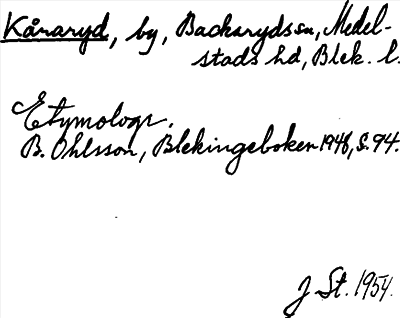 Kåraryd, by, Backarydssn, Medel-
stads hd, Blek. l.
Etymologi.
B. Ohlsson, Blekingeboken 1946, s. 94.
J St. 1954.